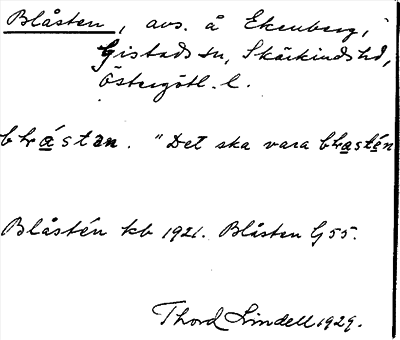 Blåsten, avs. å Ekenberg,
Gistads sn, Skärkinds hd,
Östergötl. l.
blrástan. "Det ska vara blrastén
Blåstén kb 1921. Blåsten G 55.
Thord Lindell 1929.